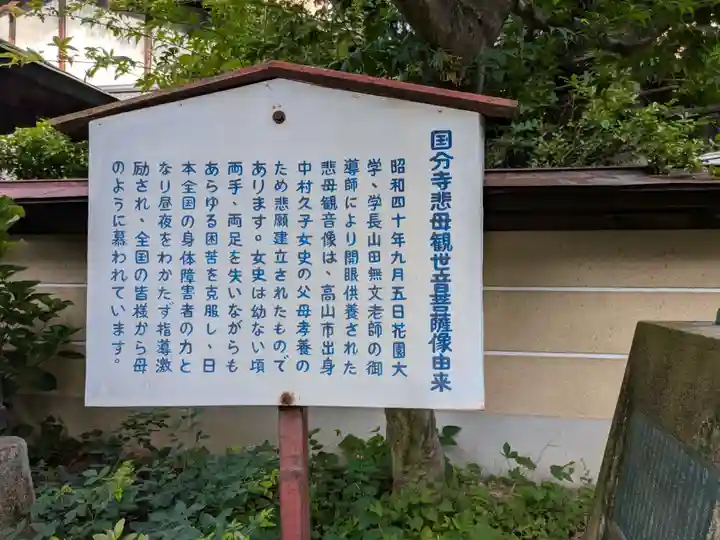 国分寺悲母観世音菩薩像由来
昭和四十年九月五日花園大
学、学長山田無文老師の御
導師により開眼供養された
悲母観音像は、高山市出身
中村久子女史の父母孝養の
ため悲願建立されたもので
あります。女史は幼ない頃
両手、両足を失いながらも
あらゆる困苦を克服し、日
本全国の身体障害者の力と
なり昼夜をわかたず指導激
励され、全国の皆様から母
のように慕われています。